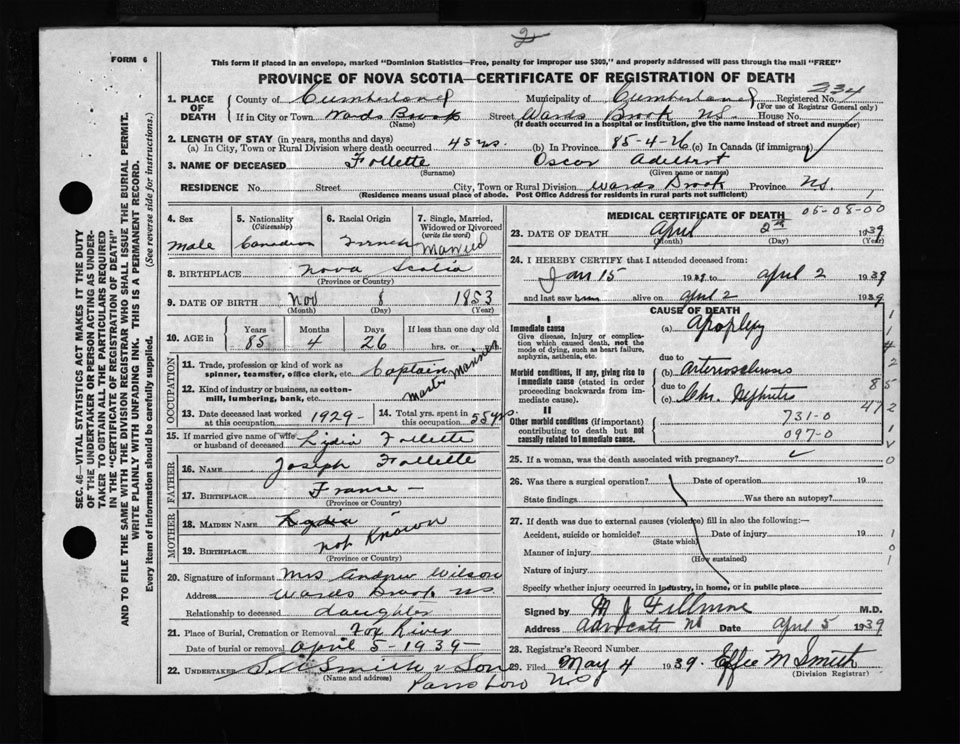 2
FORM 6
This form if placed in an envelope, marked "Dominion Statistics—Free, penalty for improper use $300," and properly addressed will pass through the mail "FREE"
PROVINCE OF NOVA SCOTIA—CERTIFICATE OF REGISTRATION OF DEATH
1. PLACE OF DEATH County of Cumberland Municipality of Cumberland Registered No. 234
(For use of Registrar General only)
If in City or Town Wards Brook Street Wards Brook NS. House No.
(Name) (If death occurred in a hospital or institution, give the name instead of street and number)
2. LENGTH OF STAY (in years, months and days)
(a) In City, Town or Rural Division where death occurred 45 yrs. (b) In Province 85-4-26 (c) In Canada (if immigrant)
3. NAME OF DECEASED Follette Oscar Adelbert
(Surname) (Given name or names)
RESIDENCE No. Street City, Town or Rural Division Wards Brook Province NS.
(Residence means usual place of abode. Post Office Address for residents in rural parts not sufficient)
4. Sex 5. Nationality (Citizenship) 6. Racial Origin 7. Single, Married, Widowed or Divorced (write the word)
Male Canadian French Married
8. BIRTHPLACE Nova Scotia
(Province or Country)
9. DATE OF BIRTH Nov 8 1853
(Month) (Day) (Year)
10. AGE in Years Months Days If less than one day old
85 4 26 hrs. or min.
OCCUPATION
11. Trade, profession or kind of work as spinner, teamster, office clerk, etc. Captain
12. Kind of industry or business, as cotton-mill, lumbering, bank, etc. Master Mariner
13. Date deceased last worked at this occupation 1929- 14. Total yrs. spent in this occupation 55 yrs.
15. If married give name of wife or husband of deceased Lydia Follette
FATHER
16. NAME Joseph Follette
17. BIRTHPLACE France -
(Province or Country)
MOTHER
18. MAIDEN NAME Lydia
19. BIRTHPLACE not Known
(Province or Country)
20. Signature of informant Mrs Andrew Wilson
Address Wards Brook NS
Relationship to deceased daughter
21. Place of Burial, Cremation or Removal Fox River
Date of burial or removal April 5-1939-
22. UNDERTAKER Smith & Son
(Name and address)
Parrsboro NS
MEDICAL CERTIFICATE OF DEATH
05-08-00
1
23. DATE OF DEATH April 2nd 1939
(Month) (Day) (Year)
24. I HEREBY CERTIFY that I attended deceased from:
Jan 15 1939 to April 2 1939
and last saw him alive on April 2 1939
CAUSE OF DEATH
I
Immediate cause (a) Apoplexy
Give disease, injury or complication which caused death, not the mode of dying, such as heart failure, asphyxia, asthenia, etc.
due to
Morbid conditions, if any, giving rise to immediate cause (stated in order proceeding backwards from immediate cause). (b) Arteriosclerosis
due to
(c) Chr. Nephritis
II
Other morbid conditions (if important) contributing to death but not causally related to immediate cause.
731-0
097-0
25. If a woman, was the death associated with pregnancy?
26. Was there a surgical operation? Date of operation 19
State findings Was there an autopsy?
27. If death was due to external causes (violence) fill in also the following:—
Accident, suicide or homicide? Date of injury 19
(State which)
Manner of injury
(How sustained)
Nature of injury
Specify whether injury occurred in industry, in home, or in public place
Signed by M J Fillmore M.D.
Address Advocate NS Date April 5 1939
28. Registrar's Record Number
29. Filed May 4 1939. Effie M Smith
(Division Registrar)
SEC. 46—VITAL STATISTICS ACT MAKES IT THE DUTY
OF THE UNDERTAKER OR PERSON ACTING AS UNDER-
TAKER TO OBTAIN ALL THE PARTICULARS REQUIRED
IN THE "CERTIFICATE OF REGISTRATION OF DEATH"
AND TO FILE THE SAME WITH THE DIVISION REGISTRAR WHO SHALL ISSUE THE BURIAL PERMIT.
WRITE PLAINLY WITH UNFADING INK. THIS IS A PERMANENT RECORD.
Every item of information should be carefully supplied. (See reverse side for instructions.)